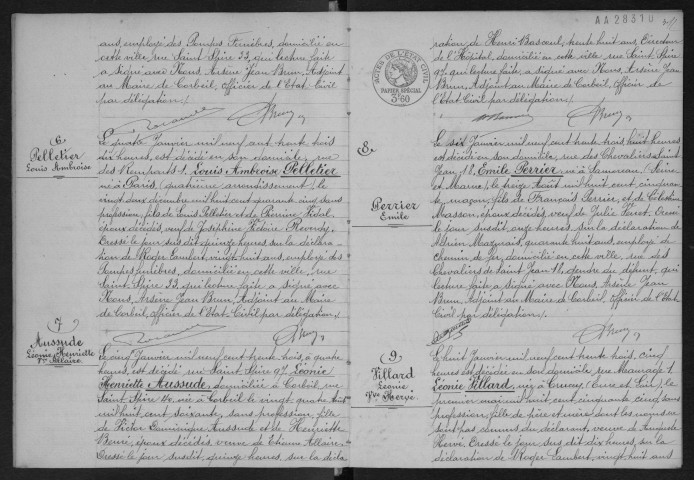 ans, employé des Pompes Funèbres, domicilié en
cette ville, rue Saint Spire 33, qui lecture faite
a signé avec Nous, Arsène Jean Brun, Adjoint
au Maire de Corbeil, officier de l'Etat Civil
par délégation./.
6
Pelletier
Louis Ambroise
Le quatre Janvier mil neuf cent trente trois
dix heures, est décédé en son domicile, rue
des Remparts 1, Louis Ambroise Pelletier
né à Paris (quatrième arrondissement), le
vingt deux décembre mil huit cent quarante cinq, sans
profession, fils de Louis Pelletier et de Perrine Vidal,
époux décédés, veuf de Joséphine Victoire
Dressé le jour sus dit, quinze heures sur la déclara-
tion de Roger Lambert, vingt huit ans, employé des
Pompes funèbres, domicilié en cette ville, rue
Saint Spire 33, qui lecture faite, a signé avec
Nous, Arsène Jean Brun, Adjoint au Maire
de Corbeil, officier de l'Etat Civil par délégation./.
7
Aussude
Léonie Henriette
Vve Allaire
Le cinq Janvier mil neuf cent trente trois, à quatre
heures, est décédée rue Saint Spire 97, Léonie
Henriette Aussude, domiciliée à Corbeil, rue
Saint Spire 24, née à Corbeil le vingt quatre
mil huit cent soixante, sans profession, fille
de Victor Dominique Aussude et de Henriette
époux décédés, veuve de Allaire.
Dressé le jour susdit, quinze heures, sur la décla
AA28310
ACTES DE L'ETAT CIVIL
PAPIER SPÉCIAL
3f60
ration de Henri Bascoul, trente huit ans, Directeur
de l'Hôpital, domicilié en cette ville rue Saint Spire
97, qui lecture faite, a signé avec Nous, Arsène Jean
Brun, Adjoint au Maire de Corbeil, Officier de
l'Etat Civil par délégation./.
8
Perrier
Emile
Le six Janvier mil neuf cent trente trois huit heures
est décédé en son domicile, rue des Chevaliers Saint
Jean 18, Emile Perrier né à Samoreau (Seine
et Marne), le treize Août mil huit cent cinquante
maçon, fils de François Perrier, et de Célestine
Masson, époux décédés, veuf de Julie
le jour susdit, onze heures, sur la déclaration de
Adrien quarante huit ans, employé de
Chemin de fer, domicilié en cette ville, rue des
Chevaliers de Saint Jean 11, gendre du défunt, qui
lecture faite a signé avec Nous, Arsène Jean
Brun, Adjoint au Maire de Corbeil, Officier de l'Etat
Civil par délégation./.
9
Villard
Léonie
Vve Hervé
Le huit Janvier mil neuf cent trente trois, cinq
heures, est décédée en son domicile, rue 1
Léonie Villard, née à (Eure et Loir), le
premier mai mil huit cent cinquante cinq, sans
profession, fille de père et mère dont les noms ne
sont pas connus du déclarant, veuve de Auguste
Hervé. Dressé le jour sus dit dix heures, sur la
déclaration de Roger Lambert, vingt huit ans